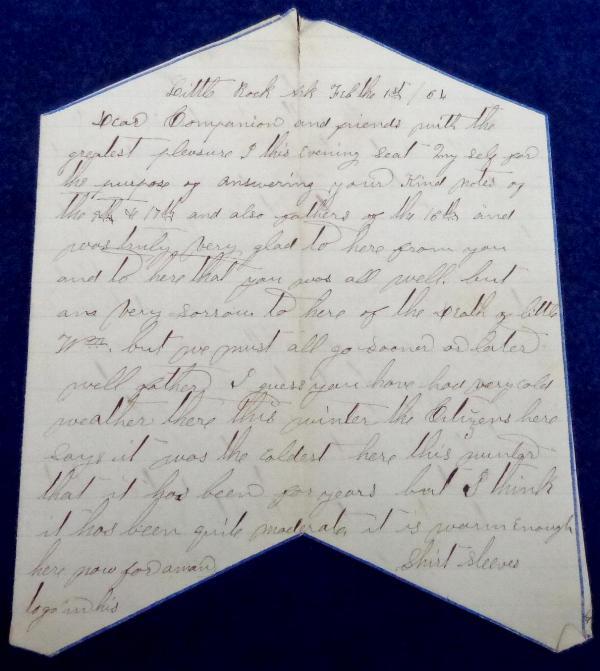 Little Rock Ark Feb the 1st / 64
Dear Companion and friends with the
greatest pleasure I this Evening seat my self for
the purpose of answering your Kind notes of
the & 17th and also fathers of the 16th and
was truly very glad to here from you
and to here that you was all well. but
am very sorrow to here of the Death of little
Wm. but we must all go sooner or later
well father I guess you have had very cold
weather there this winter the Citizens here
says it was the coldest here this winter
that it has been for years but I think
it has been quite moderate it is warm Enough
here now for a man Shirt Sleeves
to go in his